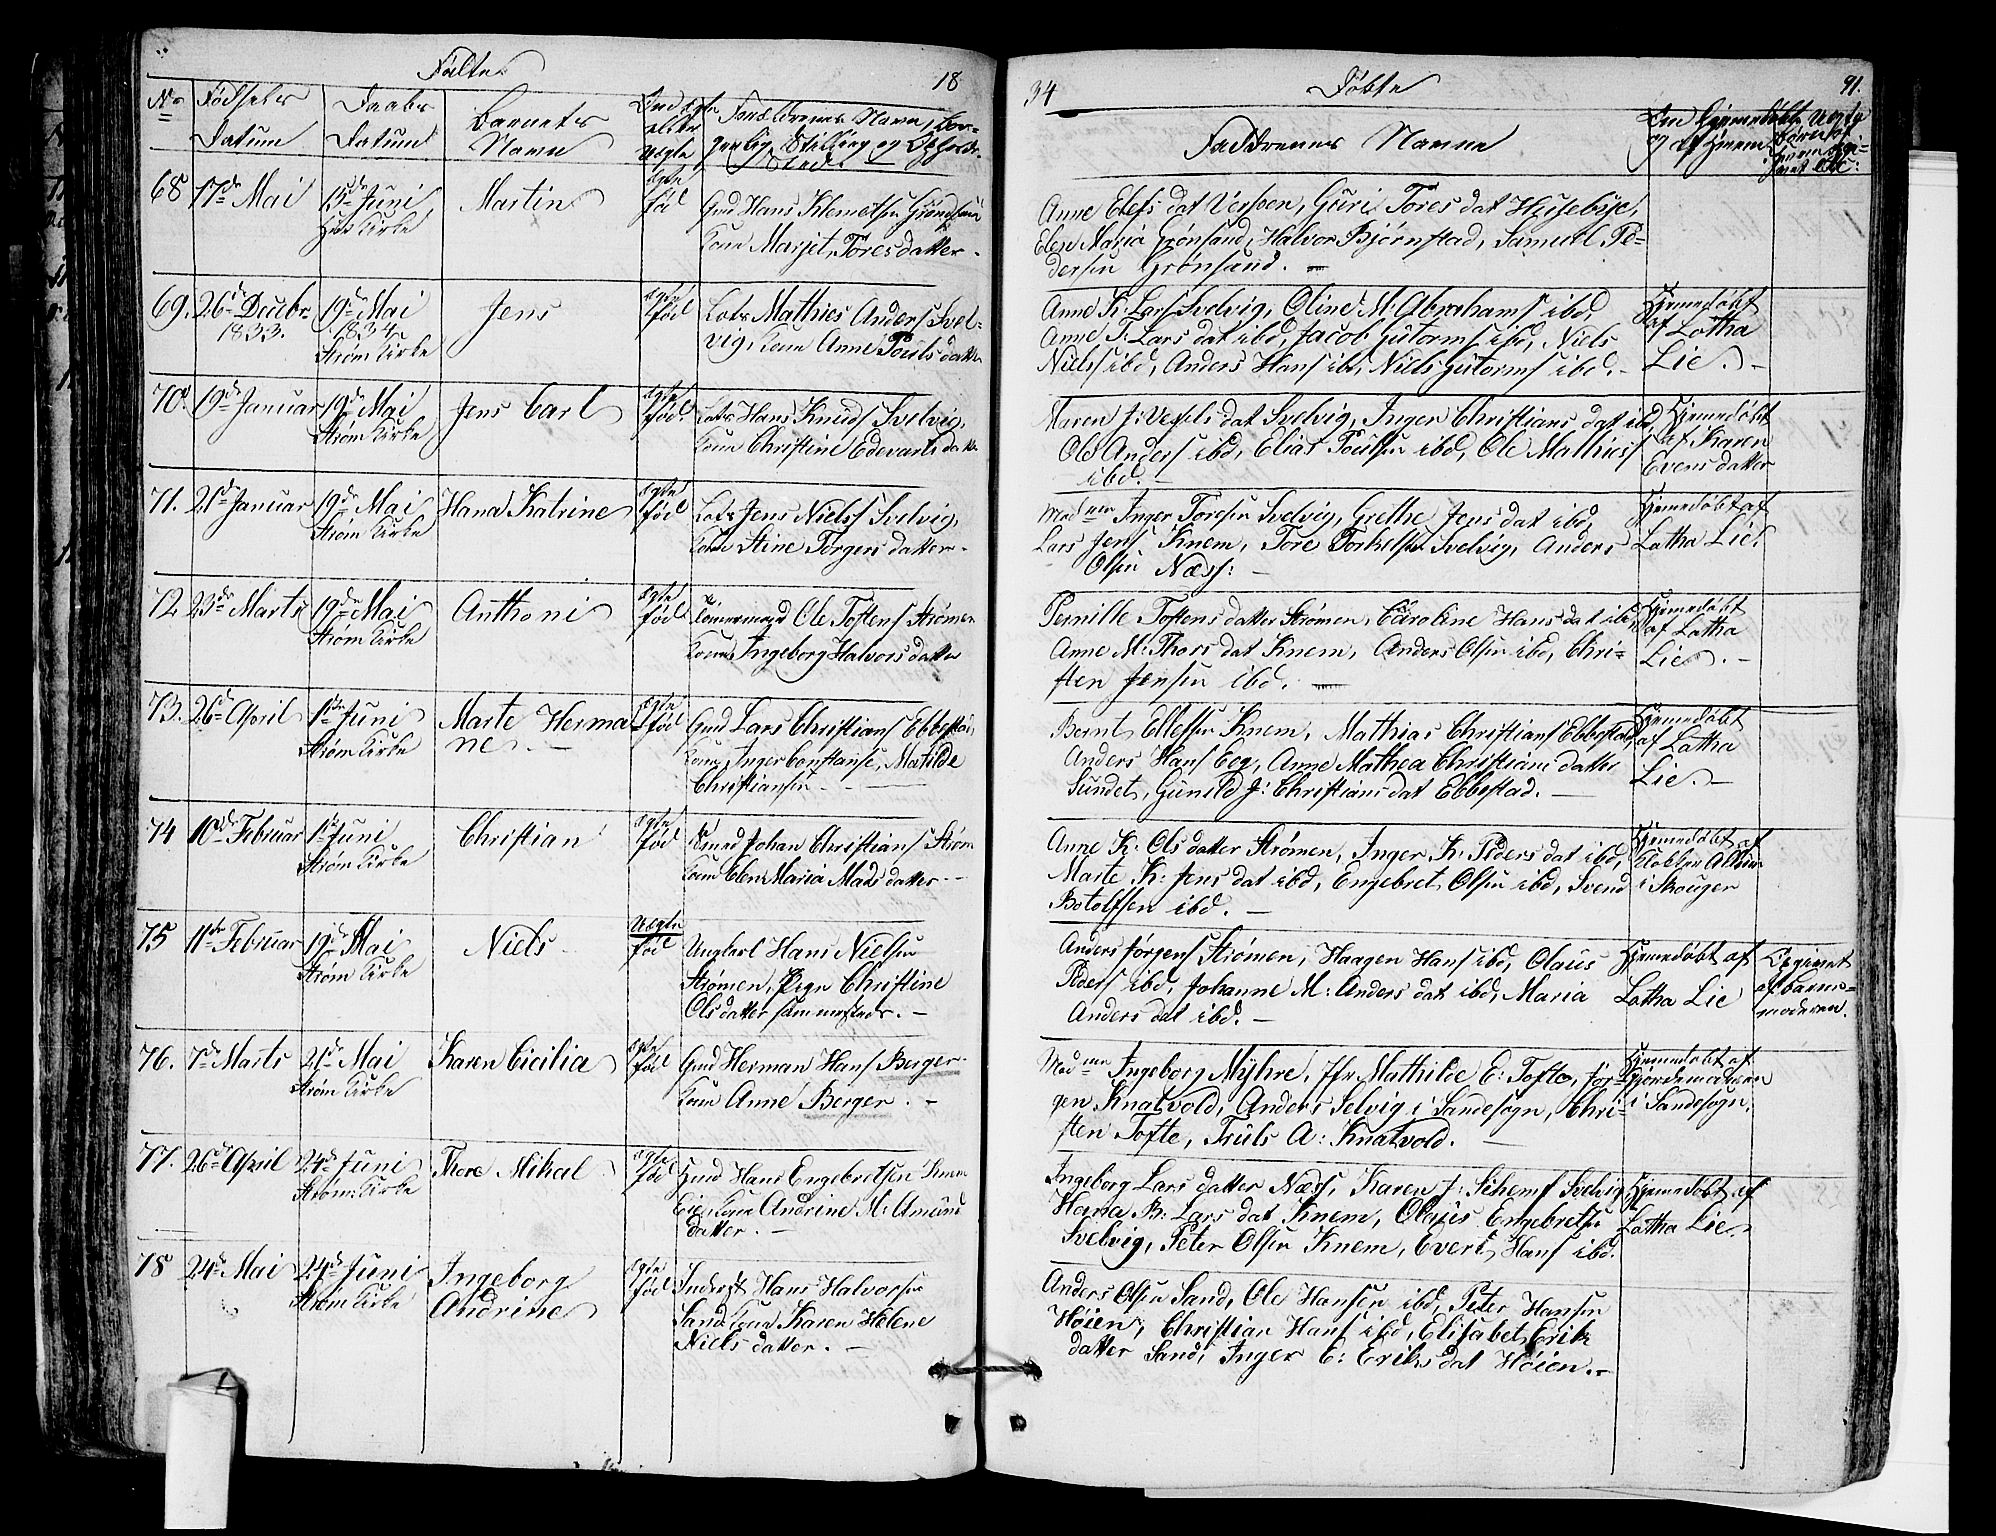 Fødte 18
No
Fødsels Datum
Daabs Datum
Barnets Navn
Om ægte eller Uægte
Forældrenes Navn, Borgerlig Stilling og Opholds Sted.
68 17de Mai
15de Juni
Martin
ægte fød
Gmd Hans Klemetsen Grønsand
Kone Marjit Tores datter.
69. 26de Decebr 1833.
19de Mai 1834
Strøm Kirke
Jens
ægte fød
Lots Mathies Anders Svel-
vig, Kone Anne Pouls datter
70. 19de Januar
19de Mai
Strøm Kirke
Jens Carl
ægte fød
Lots Hans Knuds Svelvig,
Kone Christine Edevarts datter
71. 21de Januar
19de Mai
Strøm Kirke
Hana Katrine
ægte fød
Lots Jens Niels Svelvig,
Kone Stine Torgers datter.
72 23de Marts
19de Mai
Strøm Kirke
Anthoni
ægte fød
Tømermand Ole Toftens Strømen
Kone Ingeborg Halvors datter
73. 26de April
1ste Juni
Strøm Kirke
Marte Herma
ne. —
ægte fød
Gmd Lars Christians Ebbestad,
Kone Inger Constanse, Matilde
Christiansen. —
74 10de Februar
1ste Juni
Strøm Kirke
Christian
ægte fød
Smed Johan Christians Strøm
Kone Elen Maria Mads datter. —
75 11de Februar
19de Mai
Strøm Kirke
Niels
Uægte fød
Ungkarl Hans Nielsen
Strømen, Pige Christine
Ols datter sammesteds. —
76. 7de Marts
21de Mai
Strøm Kirke
Karen Cicilia
ægte fød
Gmd Herman Hans Berger
Kone Anne Berger. —
77. 26de April
24de Juni
Strøm Kirke
Thore Mikal
ægte fød
Huud Hans Engebretsen Knem
Eie, Kone Andrine M: Amund
datter. —
78 24de Mai
24de Juni
Strøm Kirke
Ingeborg
Andrine
ægte fød
Inderst Hans Halvorsen
Sand, Kone Karen Helene
Niels datter. —
34 Døbte 91.
Faddrenes Navne
Om Hjemmedøbt og af hvem
Anne Elefs dat Versoen, Guri Tores dat Husebye,
Elen Maria Grønsand, Halvor Bjørnstad, Samuel Pe-
dersen Grønsand. —
Anne K: Lars Svelvig, Oline M: Abrahams ibd,
Anne T: Lars dat ibd, Jacob Gutorms ibd, Niels
Niels ibd, Anders Hans ibd, Niels Gutorms ibd. —
Hjemedøbt
af Lotha
Lie. —
Maren J: Vexels dat Svelvig, Inger Christians dat ibd,
Ole Anders ibd, Elias Poulsen ibd, Ole Mathies
ibd. —
Hjemedøbt
af Karen
Evens datter
Madme Inger Toresen Svelvig, Grethe Jens dat ibd,
Lars Jens Knem, Tore Torkelsen Svelvig, Anders
Olsen Næss: —
Hjemedøbt af
Lotha Lie.
Pernille Toftens datter Strømen, Caroline Hans dat ibd,
Anne M: Thors dat Knem, Anders Olsen ibd, Chri-
sten Jensen ibd. —
Hjemedøbt
af Lotha
Lie. —
Bernt Ellefsen Knem, Mathias Christians Ebbestad,
Anders Hans Eeg, Anne Mathea Christians datter
Sundet, Gunild J: Christians dat Ebbestad. —
Hjemedøbt
af Lotha
Lie. —
Anne K: Ols datter Strømen, Inger K: Peders dat ibd,
Marte K: Jens dat ibd, Engebret Olsen ibd, Svend
Botolfsen ibd. —
Hjemedøbt af
i Skouger
Anders Jørgens Strømen, Haagen Hans ibd, Olaus
Peders ibd, Johanne M: Anders dat ibd, Maria
Anders dat ibd. —
Hjemedøbt af
Lotha Lie
Opgivet
af barne-
moderen.
Madme Ingeborg Myhre, Jfr Mathilde E: Tofte, Jør-
gen Knatvold, Anders Selvig i Sandesogn, Chri-
sten Tofte, Truls A: Knatvold. —
Hjemedøbt af
Gjordemoderen
i Sandesogn.
Ingeborg Lars datter Næss, Karen J: Sehems Svelvig,
Hana B: Lars dat Knem, Olaus Engebretsen
Svelvig, Peter Olsen Knem, Evert Hans ibd.
Hjemedøbt af
Lotha Lie.
Anders Olsen Sand, Ole Hansen ibd, Peter Hansen
Høien, Christian Hans ibd, Elisabet Erik
datter Sand, Inger E: Eriks dat Høien. —